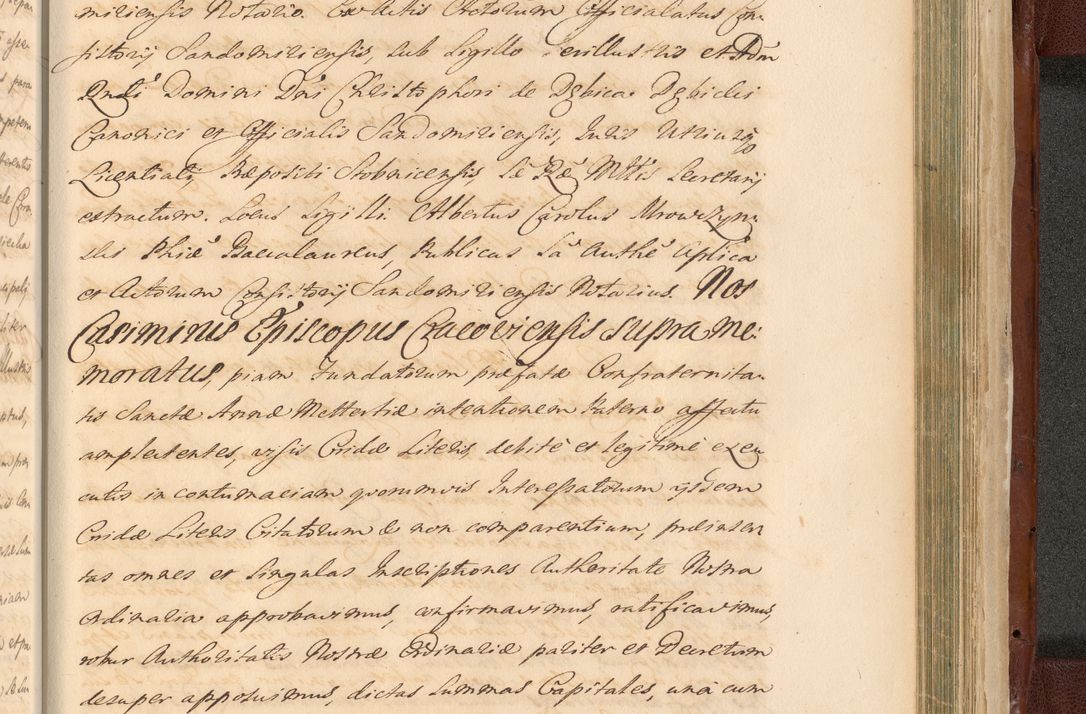 miriensis Notario. Ex Actis Actorum Officialatus Con-
sistorij Sandomiriensis, sub Sigillo Perillustris et Adm
Rndi Domini Dni Christophori de Dębica Dębicki
Canonici et Officialis Sandomiriensis, Juris Utriusq
Licentiati, Præpositi Stobnicensis, Sæ Ræ Mttis Secretarij
extractum. Locus Sigilli Albertus Carolus Mrowczyn-
ski Phiæ Baccalaureus, Publicus Sa Authe Aplica
et Actorum Consistorij Sandomiriensis Notarius. Nos
Casimirus Episcopus Cracoviensis supra me-
moratus, piam Fundatorum præfatæ Confraternita-
tis Sanctæ Annæ Mettertiæ intentionem Paterno affectu
amplectentes, visis Cridæ Literis, debite et legitime exeu
cutis in contumaciam quorumvis Interessatorum ijsdem
Cridæ Literis Citatorum & non comparentium, præinser
tas omnes et singulas Inscriptiones Autheritate Nostra
Ordinaria approbavimus, confirmavimus, ratificavimus,
robur Authoritatis Nostræ Ordinariæ pariter et Decretum
desuper apposuimus, dictas Summas Capitales, una cum